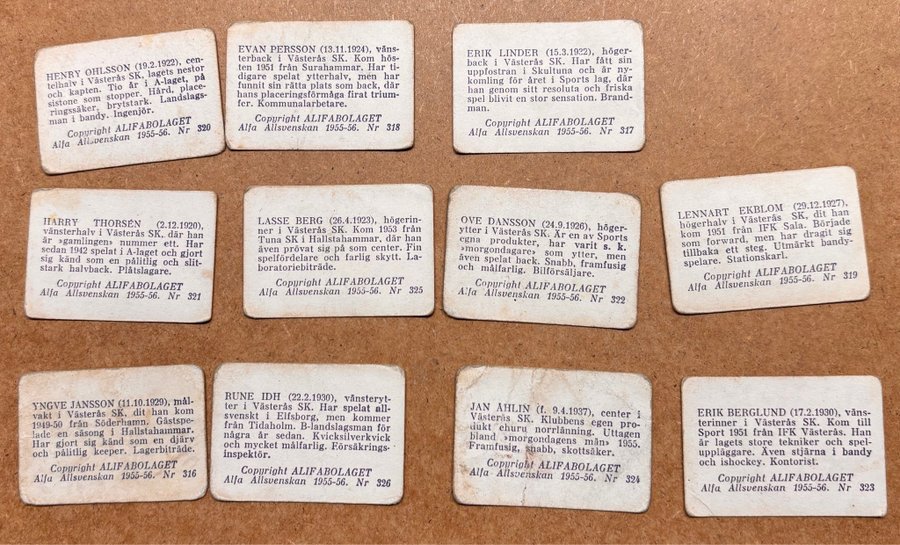 HENRY OHLSSON (19.2.1922), cen-
telhalv i Västerås SK, lagets nestor
och kapten. Tio år i A-laget, på
sistone som stopper. Hård, place-
ringssäker, brytstark. Landslags-
man i bandy. Ingenjör.
Copyright ALIFABOLAGET
Alfa Allsvenskan 1955-56. Nr 320
EVAN PERSSON (13.11.1924), väns-
terback i Västerås SK. Kom hös-
ten 1951 från Surahammar. Har ti-
digare spelat ytterhalv, men har
funnit sin rätta plats som back, där
hans placeringsförmåga firat trium-
fer. Kommunalarbetare.
Copyright ALIFABOLAGET
Alfa Allsvenskan 1955-56. Nr 318
ERIK LINDER (15.3.1922), höger-
back i Västerås SK. Har fått sin
uppfostran i Skultuna och är ny-
komling för året i Sports lag, där
han genom sitt resoluta och friska
spel blivit en stor sensation. Brand-
man.
Copyright ALIFABOLAGET
Alfa Allsvenskan 1955-56. Nr 317
HARRY THORSÉN (2.12.1920),
vänsterhalv i Västerås SK, där han
är »gamlingen» nummer ett. Har
sedan 1942 spelat i A-laget och gjort
sig känd som en pålitlig och slit-
stark halvback. Plåtslagare.
Copyright ALIFABOLAGET
Alfa Allsvenskan 1955-56. Nr 321
LASSE BERG (26.4.1923), högerin-
ner i Västerås SK. Kom 1953 från
Tuna SK i Hallstahammar, där han
även prövat sig på som center. Fin
spelfördelare och farlig skytt. La-
boratoriebiträde.
Copyright ALIFABOLAGET
Alfa Allsvenskan 1955-56. Nr 325
OVE DANSSON (24.9.1926), höger-
ytter i Västerås SK. Är en av Sports
egna produkter, har varit s. k.
»morgondagare» som ytter, men
även spelat back. Snabb, framfusig
och målfarlig. Bilförsäljare.
Copyright ALIFABOLAGET
Alfa Allsvenskan 1955-56. Nr 322
LENNART EKBLOM (29.12.1927),
högerhalv i Västerås SK, dit han
kom 1951 från IFK Sala. Började
som forward, men har dragit sig
tillbaka ett steg. Utmärkt bandy-
spelare. Stationskarl.
Copyright ALIFABOLAGET
Alfa Allsvenskan 1955-56. Nr 319
YNGVE JANSSON (11.10.1929), mål-
vakt i Västerås SK, dit han kom
1949-50 från Söderhamn. Gästspe-
lade en säsong i Hallstahammar.
Har gjort sig känd som en djärv
och pålitlig keeper. Lagerbiträde.
Copyright ALIFABOLAGET
Alfa Allsvenskan 1955-56. Nr 316
RUNE IDH (22.2.1930), vänsteryt-
ter i Västerås SK. Har spelat all-
svenskt i Elfsborg, men kommer
från Tidaholm. B-landslagsman för
några år sedan. Kvicksilverkvick
och mycket målfarlig. Försäkrings-
inspektör.
Copyright ALIFABOLAGET
Alfa Allsvenskan 1955-56. Nr 326
JAN ÅHLIN (f. 9.4.1937), center i
Västerås SK. Klubbens egen pro-
dukt ehuru norrlänning. Uttagen
bland »morgondagens män» 1955.
Framfusig, snabb, skottsäker.
Copyright ALIFABOLAGET
Alfa Allsvenskan 1955-56. Nr 324
ERIK BERGLUND (17.2.1930), väns-
terinner i Västerås SK. Kom till
Sport 1951 från IFK Västerås. Han
är lagets store tekniker och spel-
uppläggare. Även stjärna i bandy
och ishockey. Kontorist.
Copyright ALIFABOLAGET
Alfa Allsvenskan 1955-56. Nr 323